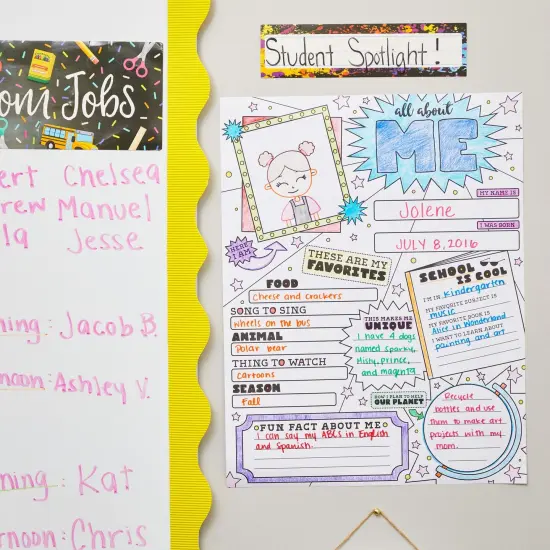 om Jobs
ert Chelsea
rew Manuel
la Jesse
ning: Jacob B.
noon: Ashley V.
ning: Kat
ernoon: Chris
Student Spotlight!
all about
ME
MY NAME IS
Jolene
I WAS BORN
JULY 8, 2016
HERE I AM
THESE ARE MY
FAVORITES
FOOD
Cheese and crackers
SONG TO SING
Wheels on the bus
ANIMAL
Polar bear
THING TO WATCH
Cartoons
SEASON
Fall
THIS MAKES ME
UNIQUE
I have 4 dogs
named Sparky,
Misty, Prince,
and Magenta
SCHOOL
IS COOL
I'M IN Kindergarten
MY FAVORITE SUBJECT IS
music
MY FAVORITE BOOK IS
Alice in Wonderland
I WANT TO LEARN ABOUT
painting and art
HOW I PLAN TO HELP
OUR PLANET
Recycle
bottles and use
them to make art
projects with my
mom.
FUN FACT ABOUT ME
I can say my ABCs in English
and Spanish.